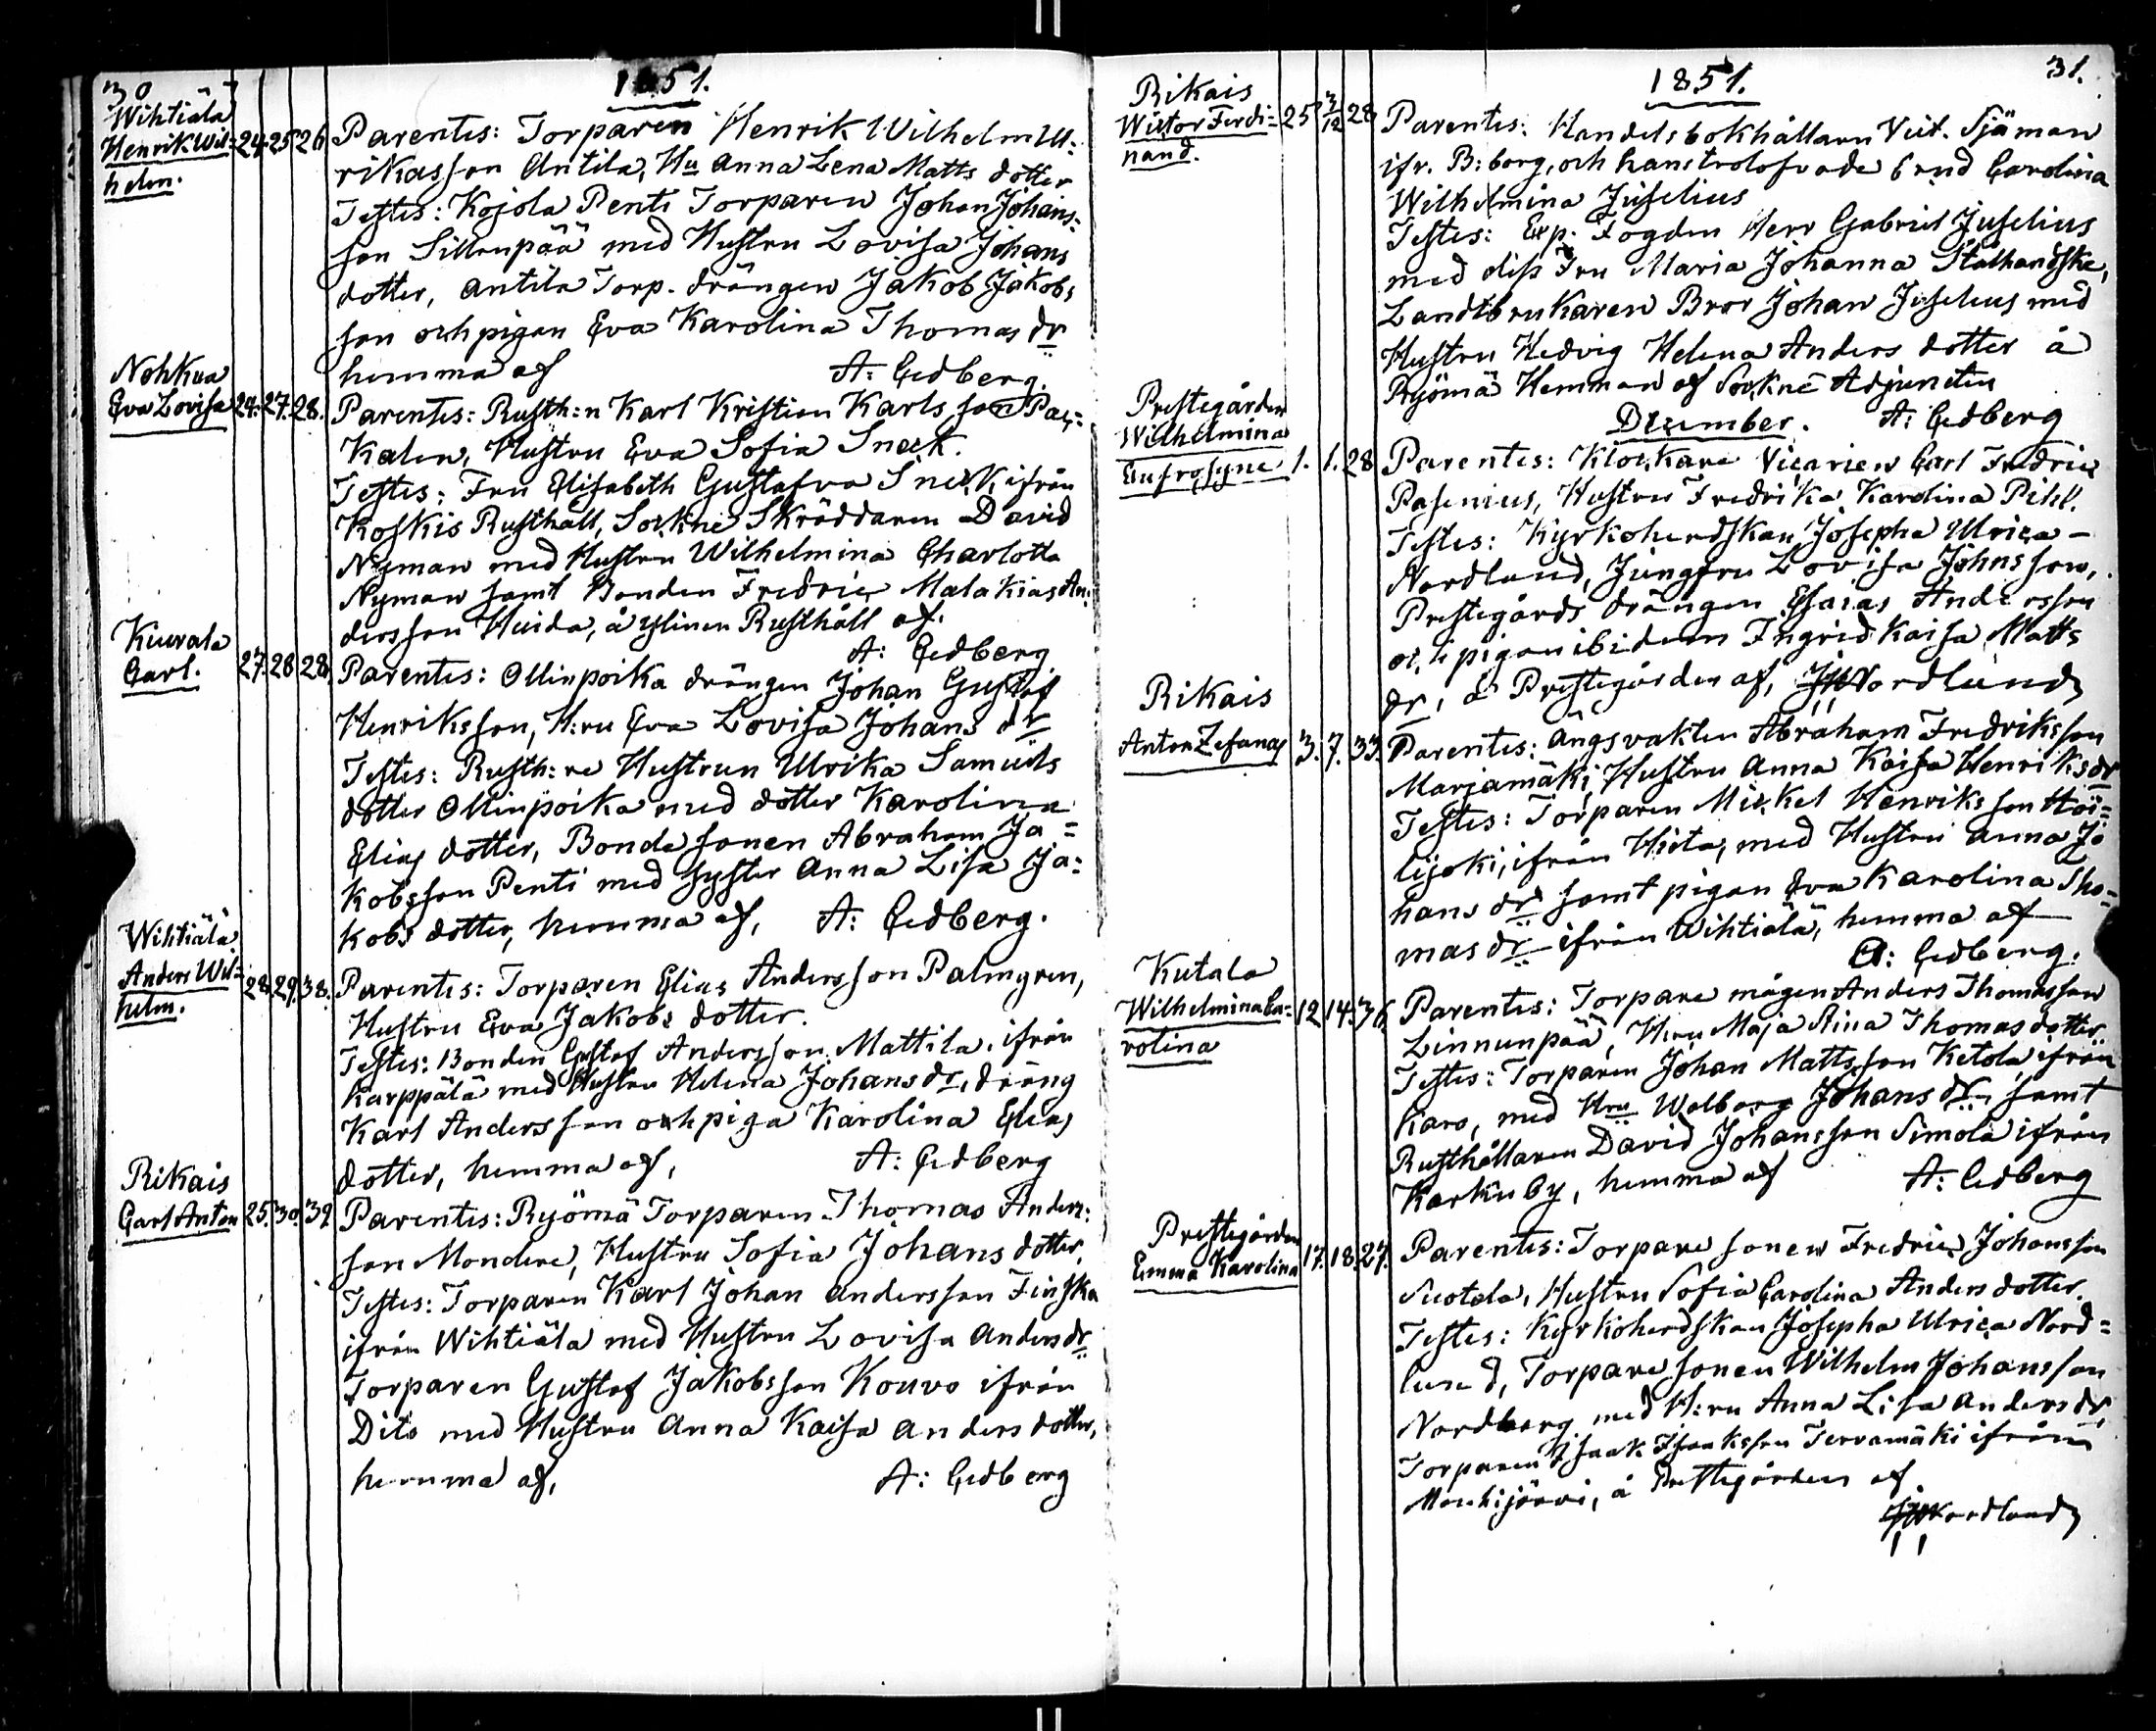 30
1851.
Wihtiälä
Henrik Wil=
helm.
24 25 26
Parentes: Torparen Henrik Wilhelm Ul=
rikasson Antila, Hu Anna Lena Matts dotter
Testes: Kojola Penti Torparen Johan Johans=
son Sillunpää med Hustru Lovisa Johans
dotter, Antila Torp. drängen Jakob Jakobs
son och pigan Eva Karolina Thomas dr
hemma af A: Cedberg.
Nohkua
Eva Lovisa
24. 27. 28.
Parentes: Rusth:n Karl Kristian Karlsson Pas=
Kalen, Hustru Eva Sofia Sneck.
Testes: Fru Elisabeth Gustafva Sneck ifrån
Koskis Rusthåll, Sockne Skräddaren David
Nyman med Hustru Wilhelmina Charlotta
Nyman samt Bonden Fredric Malakias An=
dersson Huida, å ylinen Rusthåll af.
A: Cedberg
Kuurala
Carl.
27. 28 28.
Parentes: Ollinpoika drängen Johan Gustaf
Henriksson, H:ru Eva Lovisa Johans dr
Testes: Rusth:re Hustrun Ulrika Samuels
dotter Ollinpoika med dotter Karolina
Elias dotter, Bonde sonen Abraham Ja=
kobsson Penti med syster Anna Lisa Ja=
kobs dotter, hemma af, A: Cedberg.
Wihtiälä
Anders Wil=
helm.
28. 29. 38.
Parentes: Torparen Elias Andersson Palmgren,
Hustru Eva Jakobs dotter.
Testes: Bonden Gustaf Andersson Mattila, ifrån
Karppälä med Hustru Helena Johans dr, dräng
Karl Andersson och piga Karolina Elias
dotter, hemma af, A: Cedberg
Rikais
Carl Anton
25. 30. 39.
Parentes: Ryömä Torparen Thomas Anders=
son Mondere, Hustru Sofia Johans dotter,
Testes: Torparen Karl Johan Andersson Finska
ifrån Wihtiälä med Hustru Lovisa Anders dr
Torparen Gustaf Jakobsson Kouvo ifrån
Dito med Hustru Anna Kaisa Anders dotter,
hemma af, A: Cedberg
1851. 31.
Rikais
Wictor Ferdi=
nand.
25 3/12 28
Parentes: Handelsbokhållaren Vict. Sjöman
ifr. B:borg, och hans trolofvade brud Carolina
Wilhelmina Juselius
Testes: Exp. Fogden Herr Gabriel Juselius
med dess Fru Maria Johanna Stålhandske,
Landtbrukaren Bror Johan Juselius med
Hustru Hedvig Helena Anders dotter å
Ryömä Hemman af Sockne Adjuncten
A: Cedberg
December.
Prestegården
Wilhelmina
Eufrosyne
1. 1. 28
Parentes: Klockare Vicarien Carl Fredric
Pasenius, Hustru Fredrika Karolina Pihl.
Testes: Kyrkoherdskan Josepha Ulrica
Nordlund, Jungfru Lovisa Johnsson,
Prestegårds drängen Esaias Andersson
och pigan ibidem Ingrid Kaisa Matts
dr, å Prestegården af, JWNordlund
Rikais
Anton Zefanas
3. 7. 33.
Parentes: ängsvakten Abraham Fredriksson
Marjamäki, Hustru Anna Kaisa Henriks dr
Testes: Torparen Mickel Henriksson Hoi=
lijoki, ifrån Hiota, med Hustru Anna Jo
hans dr samt pigan Eva Karolina Tho=
mas dr ifrån Wihtiälä, hemma af
A: Cedberg.
Kutala
Wilhelmina Ca=
rolina
12 14. 36.
Parentes: Torpare mågen Anders Thomasson
Linnunpää, H:ru Maja Stina Thomas dotter
Testes: Torparen Johan Mattsson Ketola, ifrån
Karo, med Hru Walborg Johans dr samt
Rusthållaren David Johansson Simola ifrån
Karku by, hemma af A: Cedberg
Prestegården
Emma Karolina
17. 18. 27.
Parentes: Torpare sonen Fredric Johansson
Suotala, Hustru Sofia Carolina Anders dotter.
Testes: Kyrkoherdskan Josepha Ulrica Nord=
lund, Torpare sonen Wilhelm Johansson
Nordberg med H:ru Anna Lisa Anders dr,
Torparen Isaak Isaksson Tervamäki ifrån
Mouhijärvi, å Prestegården af
JWNordlund